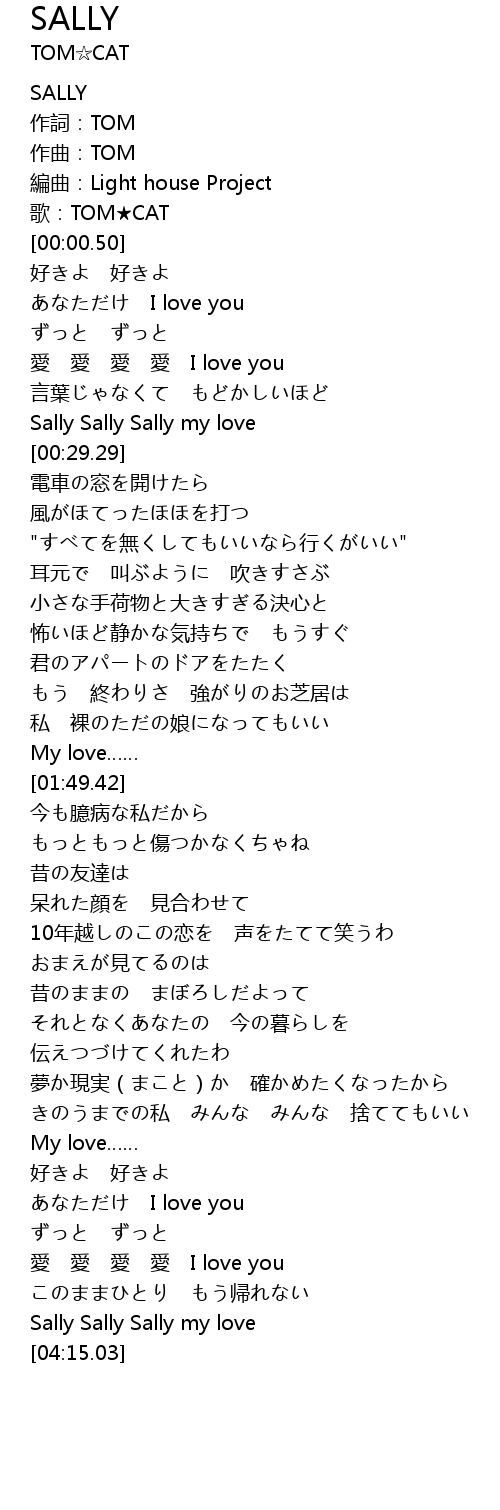 SALLY
TOM☆CAT
SALLY
作詞：TOM
作曲：TOM
編曲：Light house Project
歌：TOM★CAT
[00:00.50]
好きよ　好きよ
あなただけ　I love you
ずっと　ずっと
愛　愛　愛　愛　I love you
言葉じゃなくて　もどかしいほど
Sally Sally Sally my love
[00:29.29]
電車の窓を開けたら
風がほてったほほを打つ
"すべてを無くしてもいいなら行くがいい"
耳元で　叫ぶように　吹きすさぶ
小さな手荷物と大きすぎる決心と
怖いほど静かな気持ちで　もうすぐ
君のアパートのドアをたたく
もう　終わりさ　強がりのお芝居は
私　裸のただの娘になってもいい
My love……
[01:49.42]
今も臆病な私だから
もっともっと傷つかなくちゃね
昔の友達は
呆れた顔を　見合わせて
10年越しのこの恋を　声をたてて笑うわ
おまえが見てるのは
昔のままの　まぼろしだよって
それとなくあなたの　今の暮らしを
伝えつづけてくれたわ
夢か現実（まこと）か　確かめたくなったから
きのうまでの私　みんな　みんな　捨ててもいい
My love……
好きよ　好きよ
あなただけ　I love you
ずっと　ずっと
愛　愛　愛　愛　I love you
このままひとり　もう帰れない
Sally Sally Sally my love
[04:15.03]